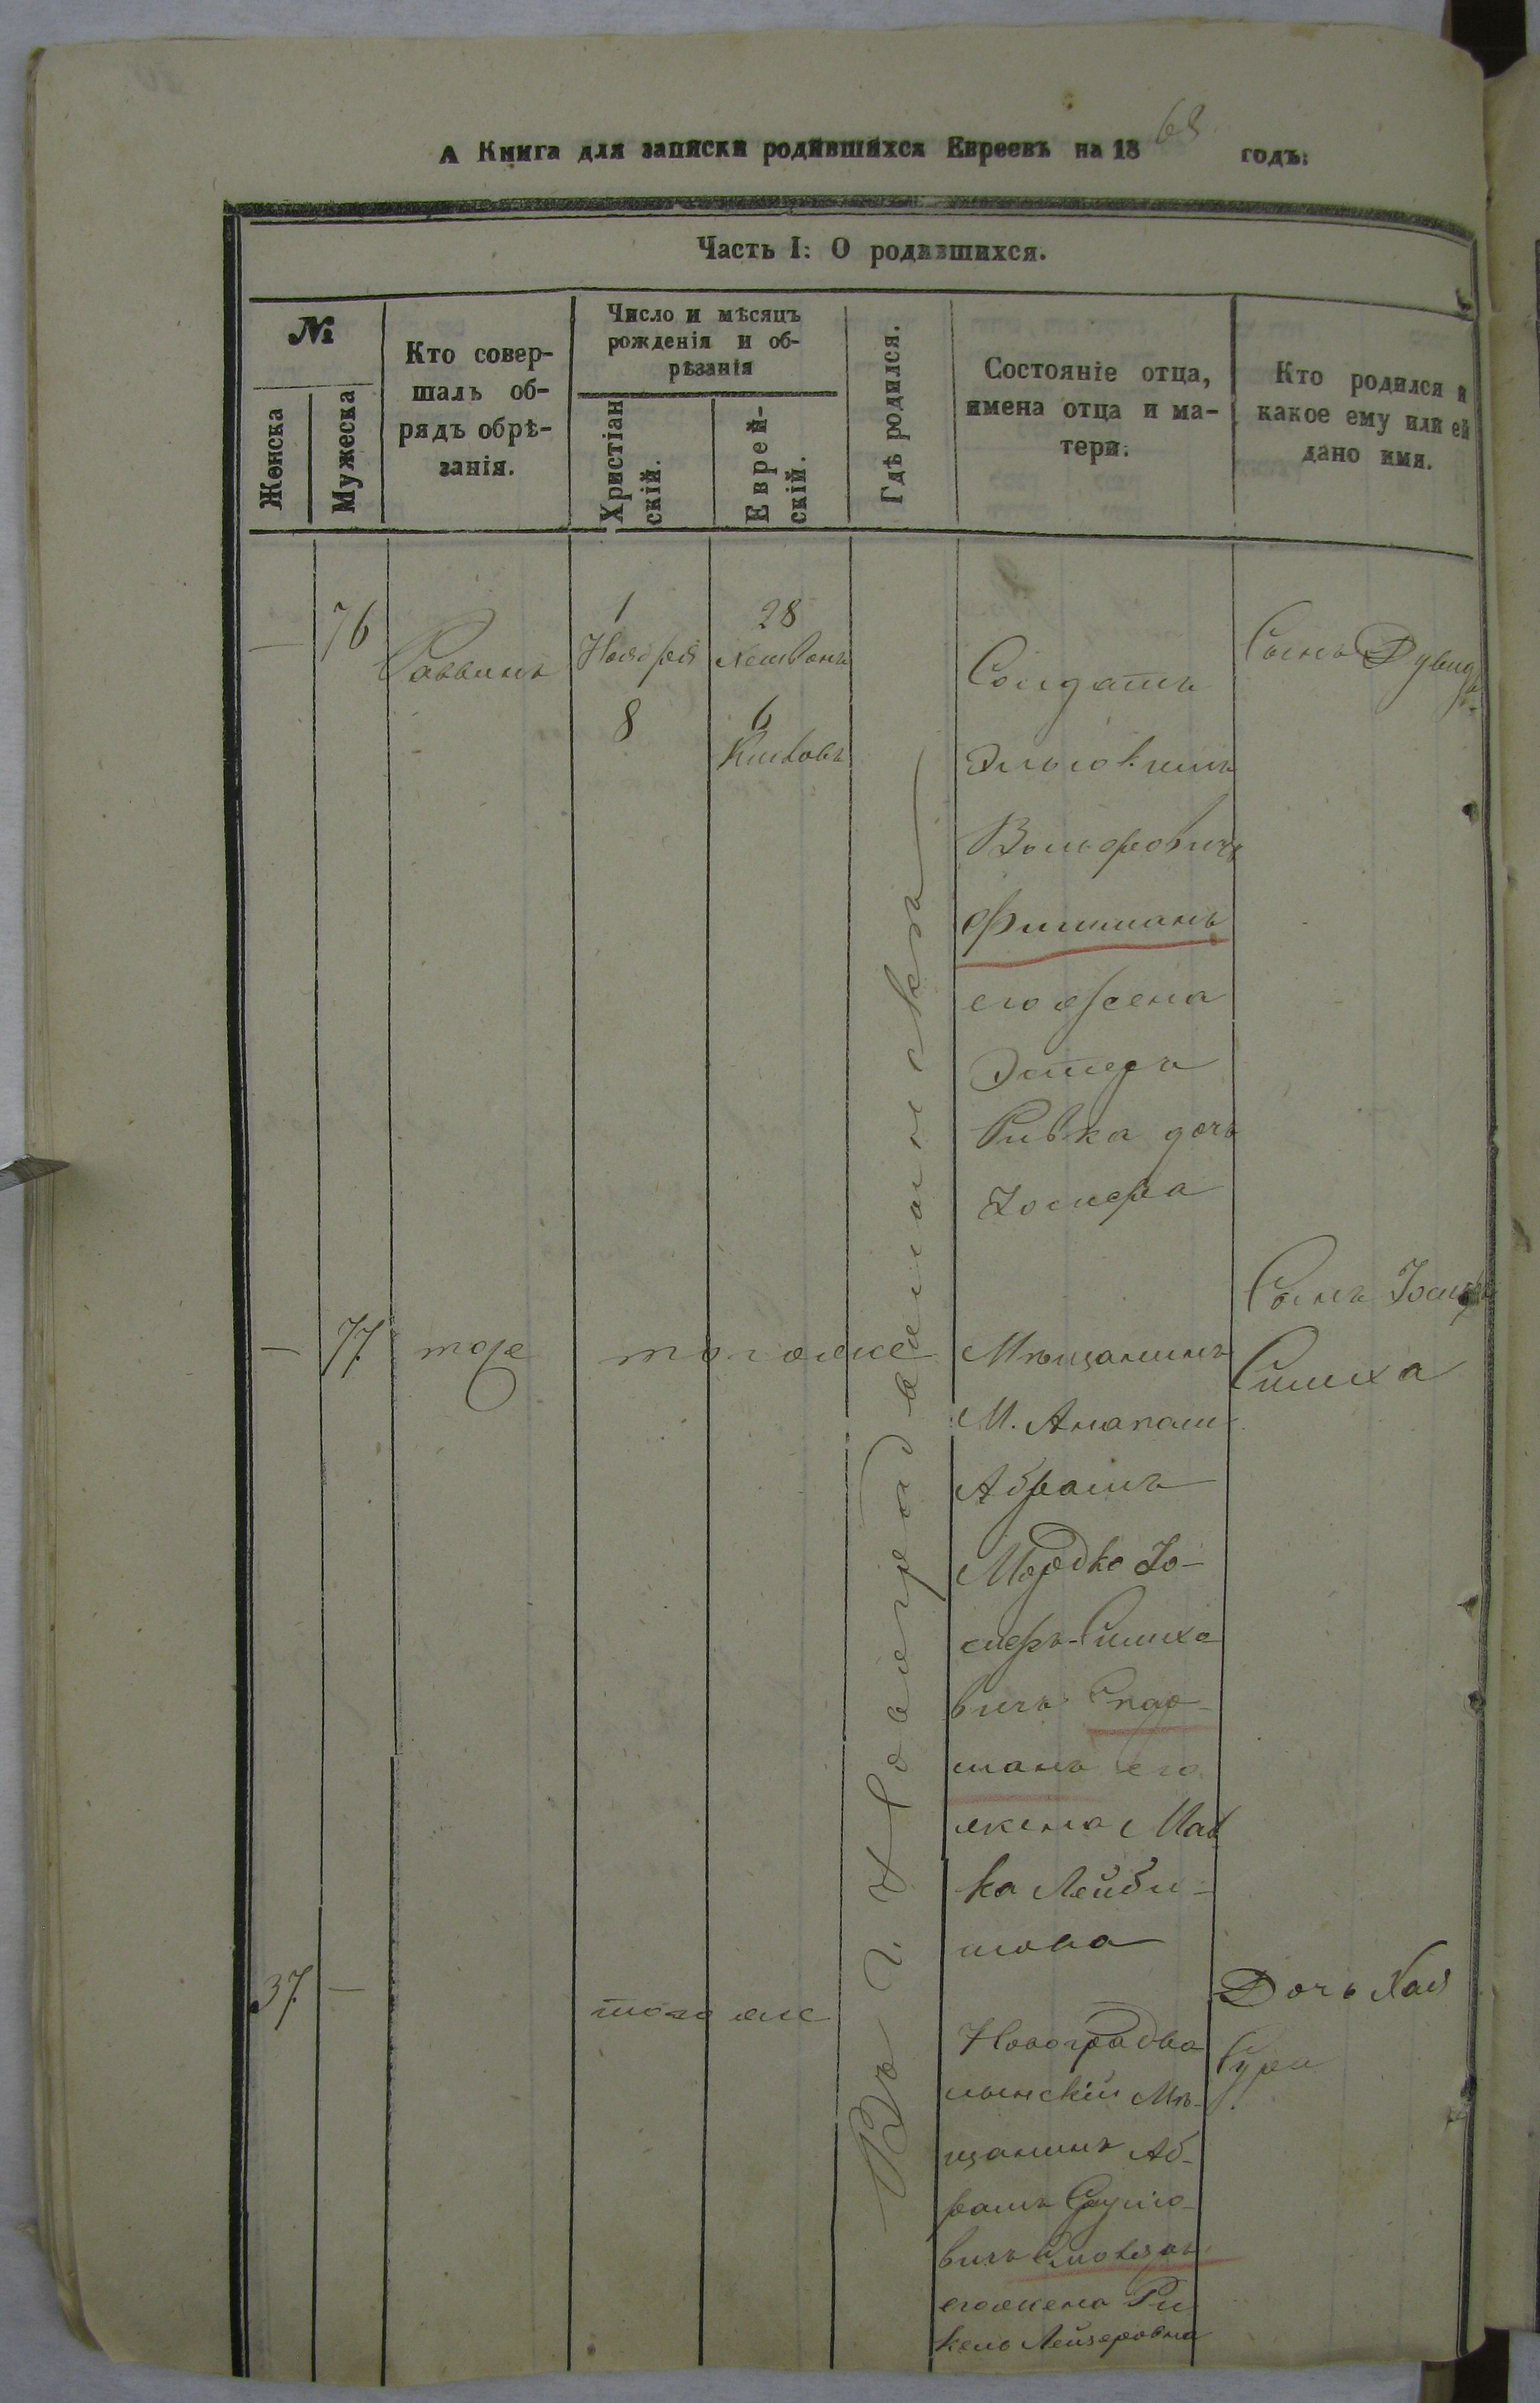 А Книга для записки родившихся Евреевъ на 1868 годъ:
Часть I: О родившихся.
№
Женска
Мужеска
Кто совер-
шалъ об-
рядъ обрѣ-
занія.
Число и мѣсяцъ
рожденія и об-
рѣзанія
Христіан
скій.
Еврей-
скій.
Гдѣ родился.
Состояніе отца,
имена отца и ма-
тери.
Кто родился и
какое ему или ей
дано имя.
—
76
Раввинъ
1
Ноября
8
28
Хешвонъ
6
Кислова
Въ г. Новоградволынскѣ
Солдатъ
Вольфовичъ
Фишманъ
его жена
Эстеръ
Ривка дочь
Іосифа
Сынъ Дувидъ
—
77
тоже
тогоже
Мѣщанинъ
М.
Абрамъ
Мордко Іо-
сифъ-Симхо
вичъ
манъ его
жена Мал
ка Лейби-
шова
Сынъ Іосифъ
Симха
37
—
тогоже
Новоградво
лынскій Мѣ-
щанинъ Аб-
рамъ Сруло-
вичъ
его жена Ри
кель Лейзеровна
Дочь Хая
Сура